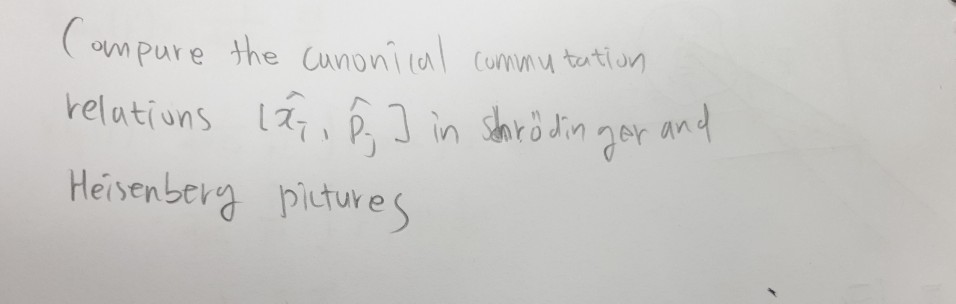 Compare the canonical commutation
relations [x̂ᵢ, p̂ⱼ] in Shrödinger and
Heisenberg pictures